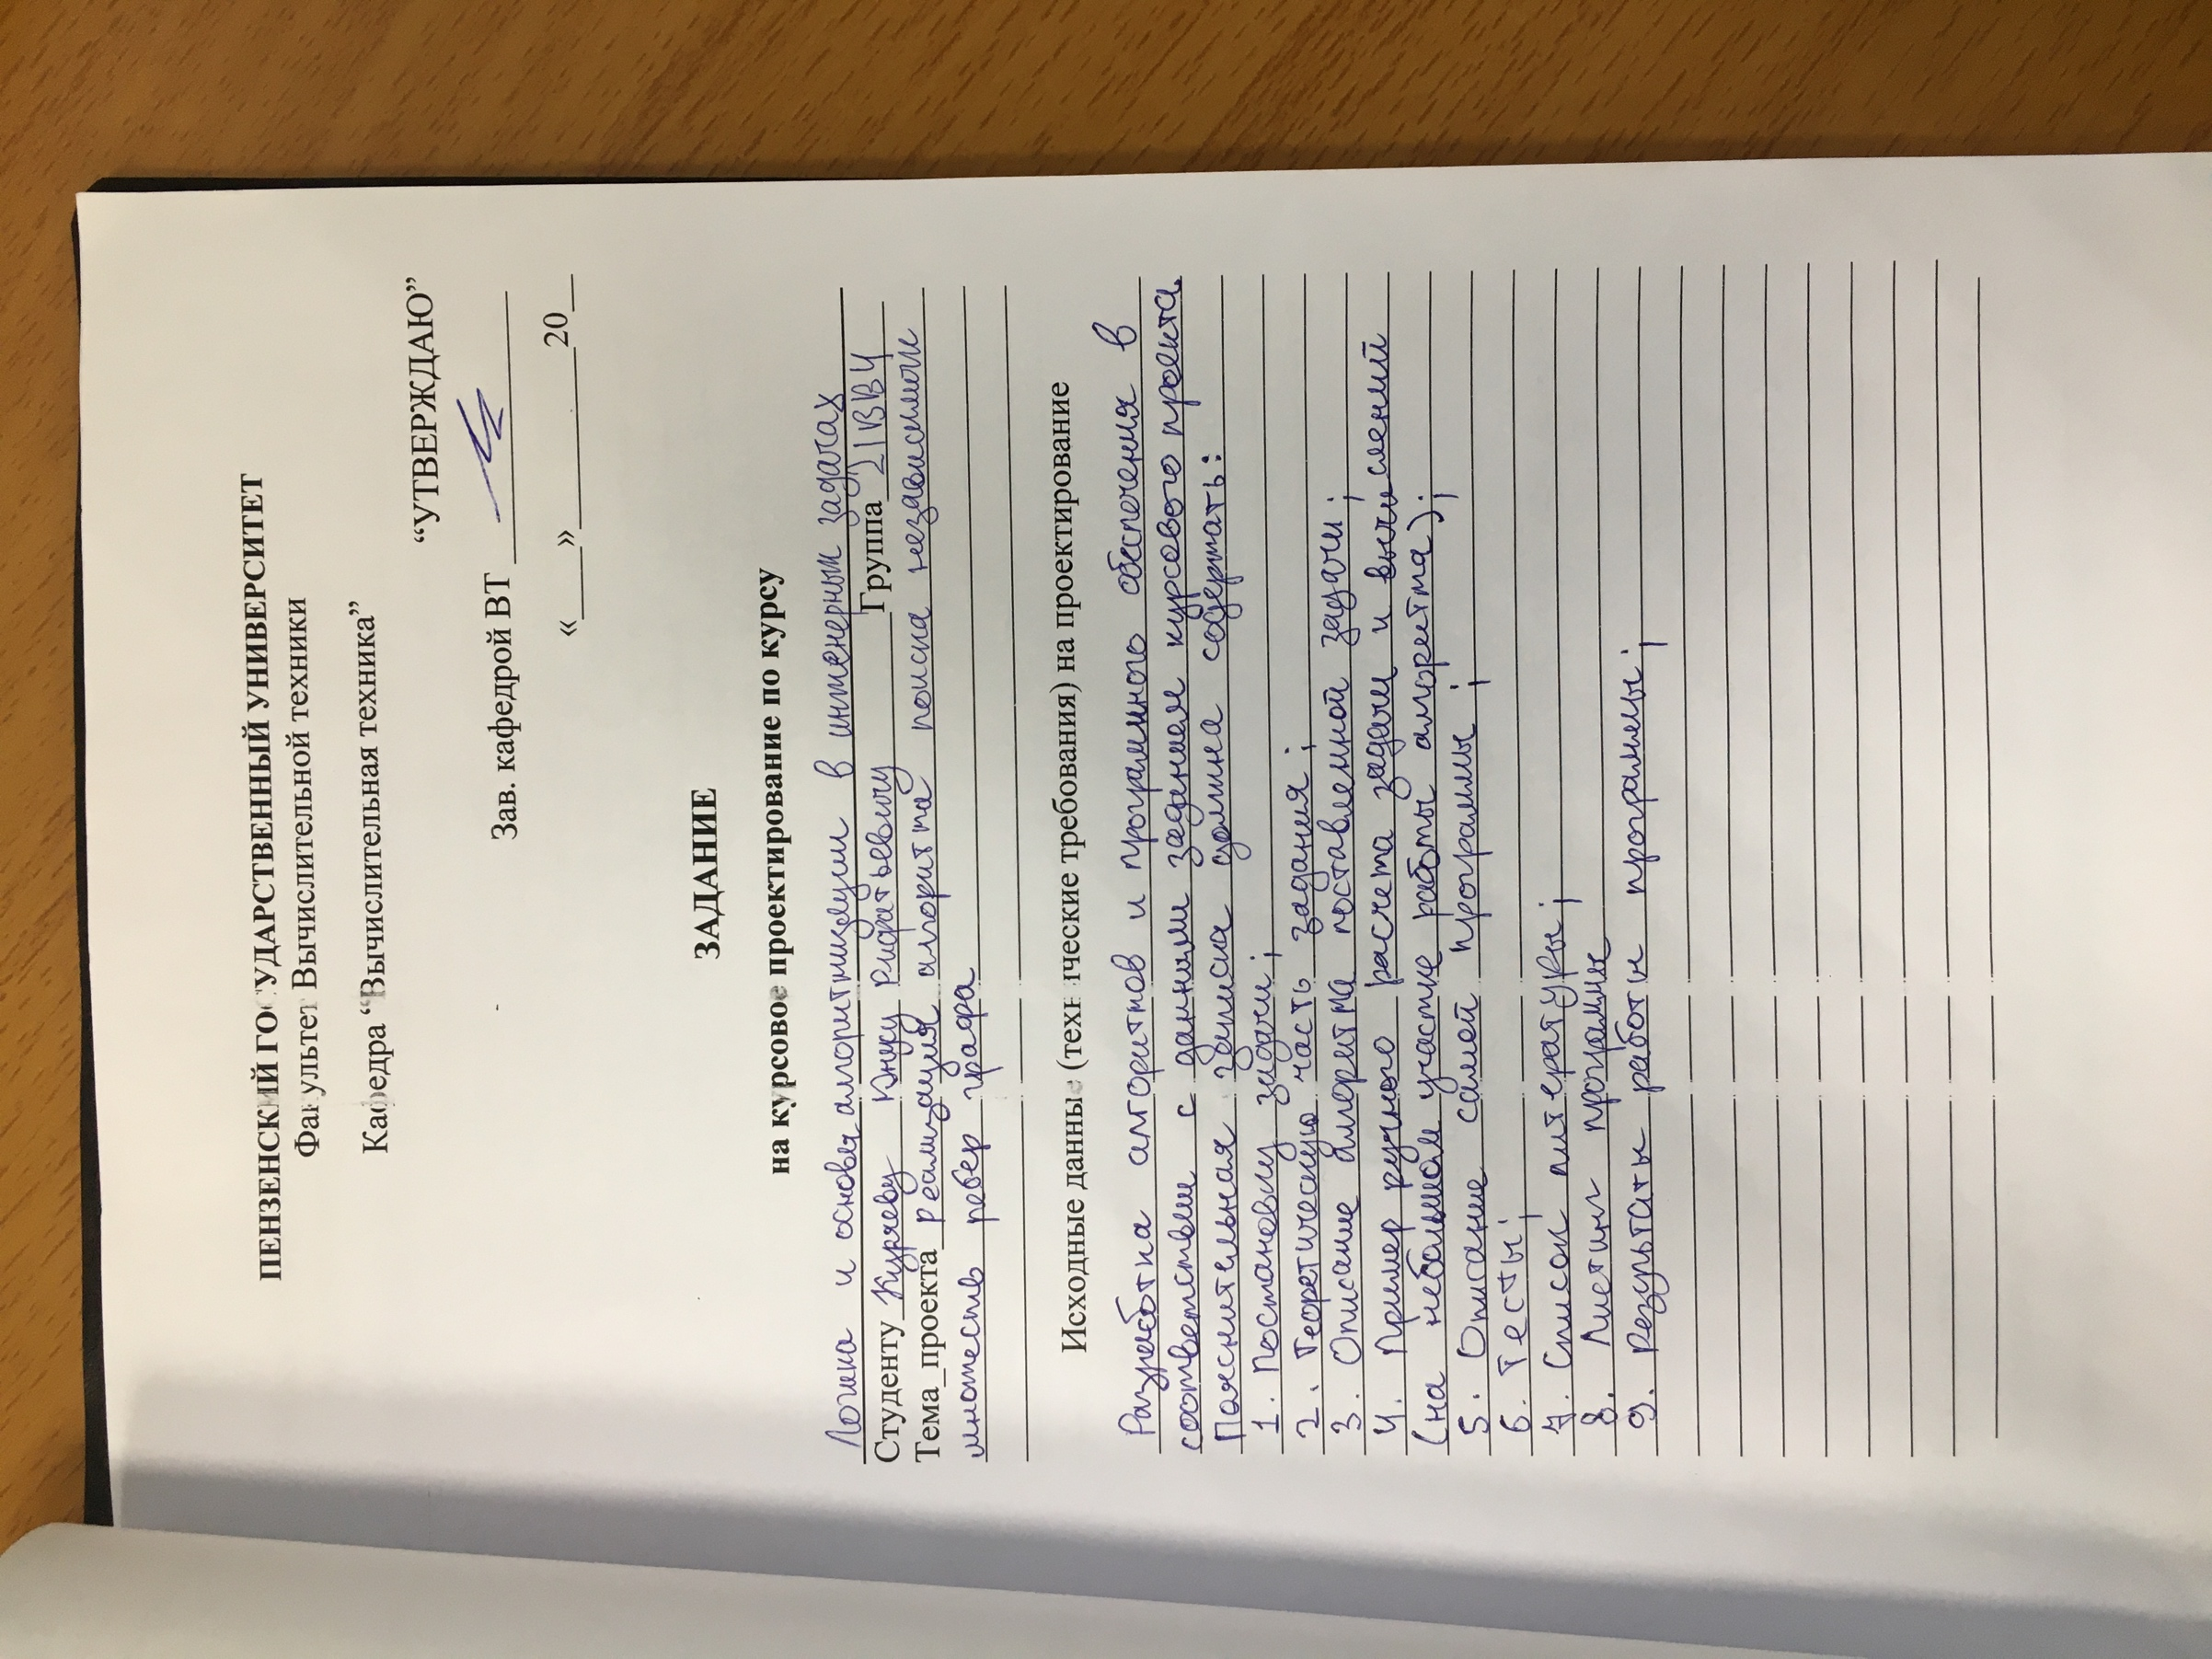 ПЕНЗЕНСКИЙ ГОСУДАРСТВЕННЫЙ УНИВЕРСИТЕТ
Факультет Вычислительной техники
Кафедра “Вычислительная техника”
“УТВЕРЖДАЮ”
Зав. кафедрой ВТ
«___»__________20_
ЗАДАНИЕ
на курсовое проектирование по курсу
Логика и основы алгоритмизации в инженерных задачах
Студенту Куряеву Юнусу Ридватьевичу Группа 21ВВ4
Тема проекта реализация алгоритма поиска независимых
множеств ребер графа
Исходные данные (технические требования) на проектирование
Разработка алгоритмов и программного обеспечения в
соответствии с данным заданием курсового проекта.
Пояснительная записка должна содержать:
1. Постановку задачи;
2. Теоретическую часть задания;
3. Описание алгоритма поставленной задачи;
4. Пример ручного расчета задачи и вычислений
(на небольшом участке работы алгоритма);
5. Описание самой программы;
6. Тесты;
7. Список литературы;
8. Листинг программы
9. Результаты работы программы;